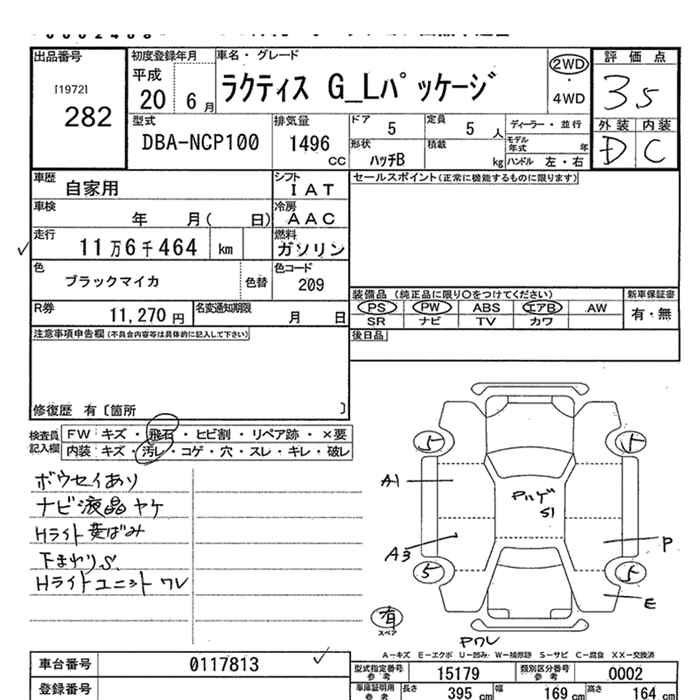 出品番号
[1972]
282
初度登録年月
平成
20 6月
車名・グレード
ラクティス G_Lパッケージ
2WD
・
4WD
評価点
3.5
外装 内装
D C
型式
DBA-NCP100
排気量
1496
CC
ドア 5
定員 5 人
ディーラー・並行
形状 ハッチB
積載 kg
モデル年式 年
ハンドル 左・右
車歴 自家用
シフト IAT
セールスポイント(正常に機能するものに限ります)
車検 年 月( 日)
冷房 AAC
走行 11万6千464 km
燃料 ガソリン
色 ブラックマイカ 色替
色コード 209
装備品 (純正品に限り○をつけてください)
新車保証書
PS PW ABS エアB AW
有・無
SR ナビ TV カワ
R券 11,270円
名変通知期限 月 日
注意事項申告欄(不具合内容等は具体的に記入して下さい)
後日品
修復歴 有〔箇所 〕
検査員記入欄
FW キズ・飛石・ヒビ割・リペア跡・×要
内装 キズ・汚レ・コゲ・穴・スレ・キレ・破レ
ボウセイあり
ナビ液晶ヤケ
Hライト黄ばみ
下まわりS
Hライトユニット ワレ
5
5
A1
Pハゲ
S1
A3
P
5
5
E
有
スペア
Pワレ
A-キズ E-エクボ U-凹み W-補修跡 S-サビ C-腐食 XX-交換済
車台番号 0117813
登録番号
型式指定番号 参考 15179
類別区分番号 参考 0002
車庫証明用 参考
長さ 395 cm
幅 169 cm
高さ 164 cm